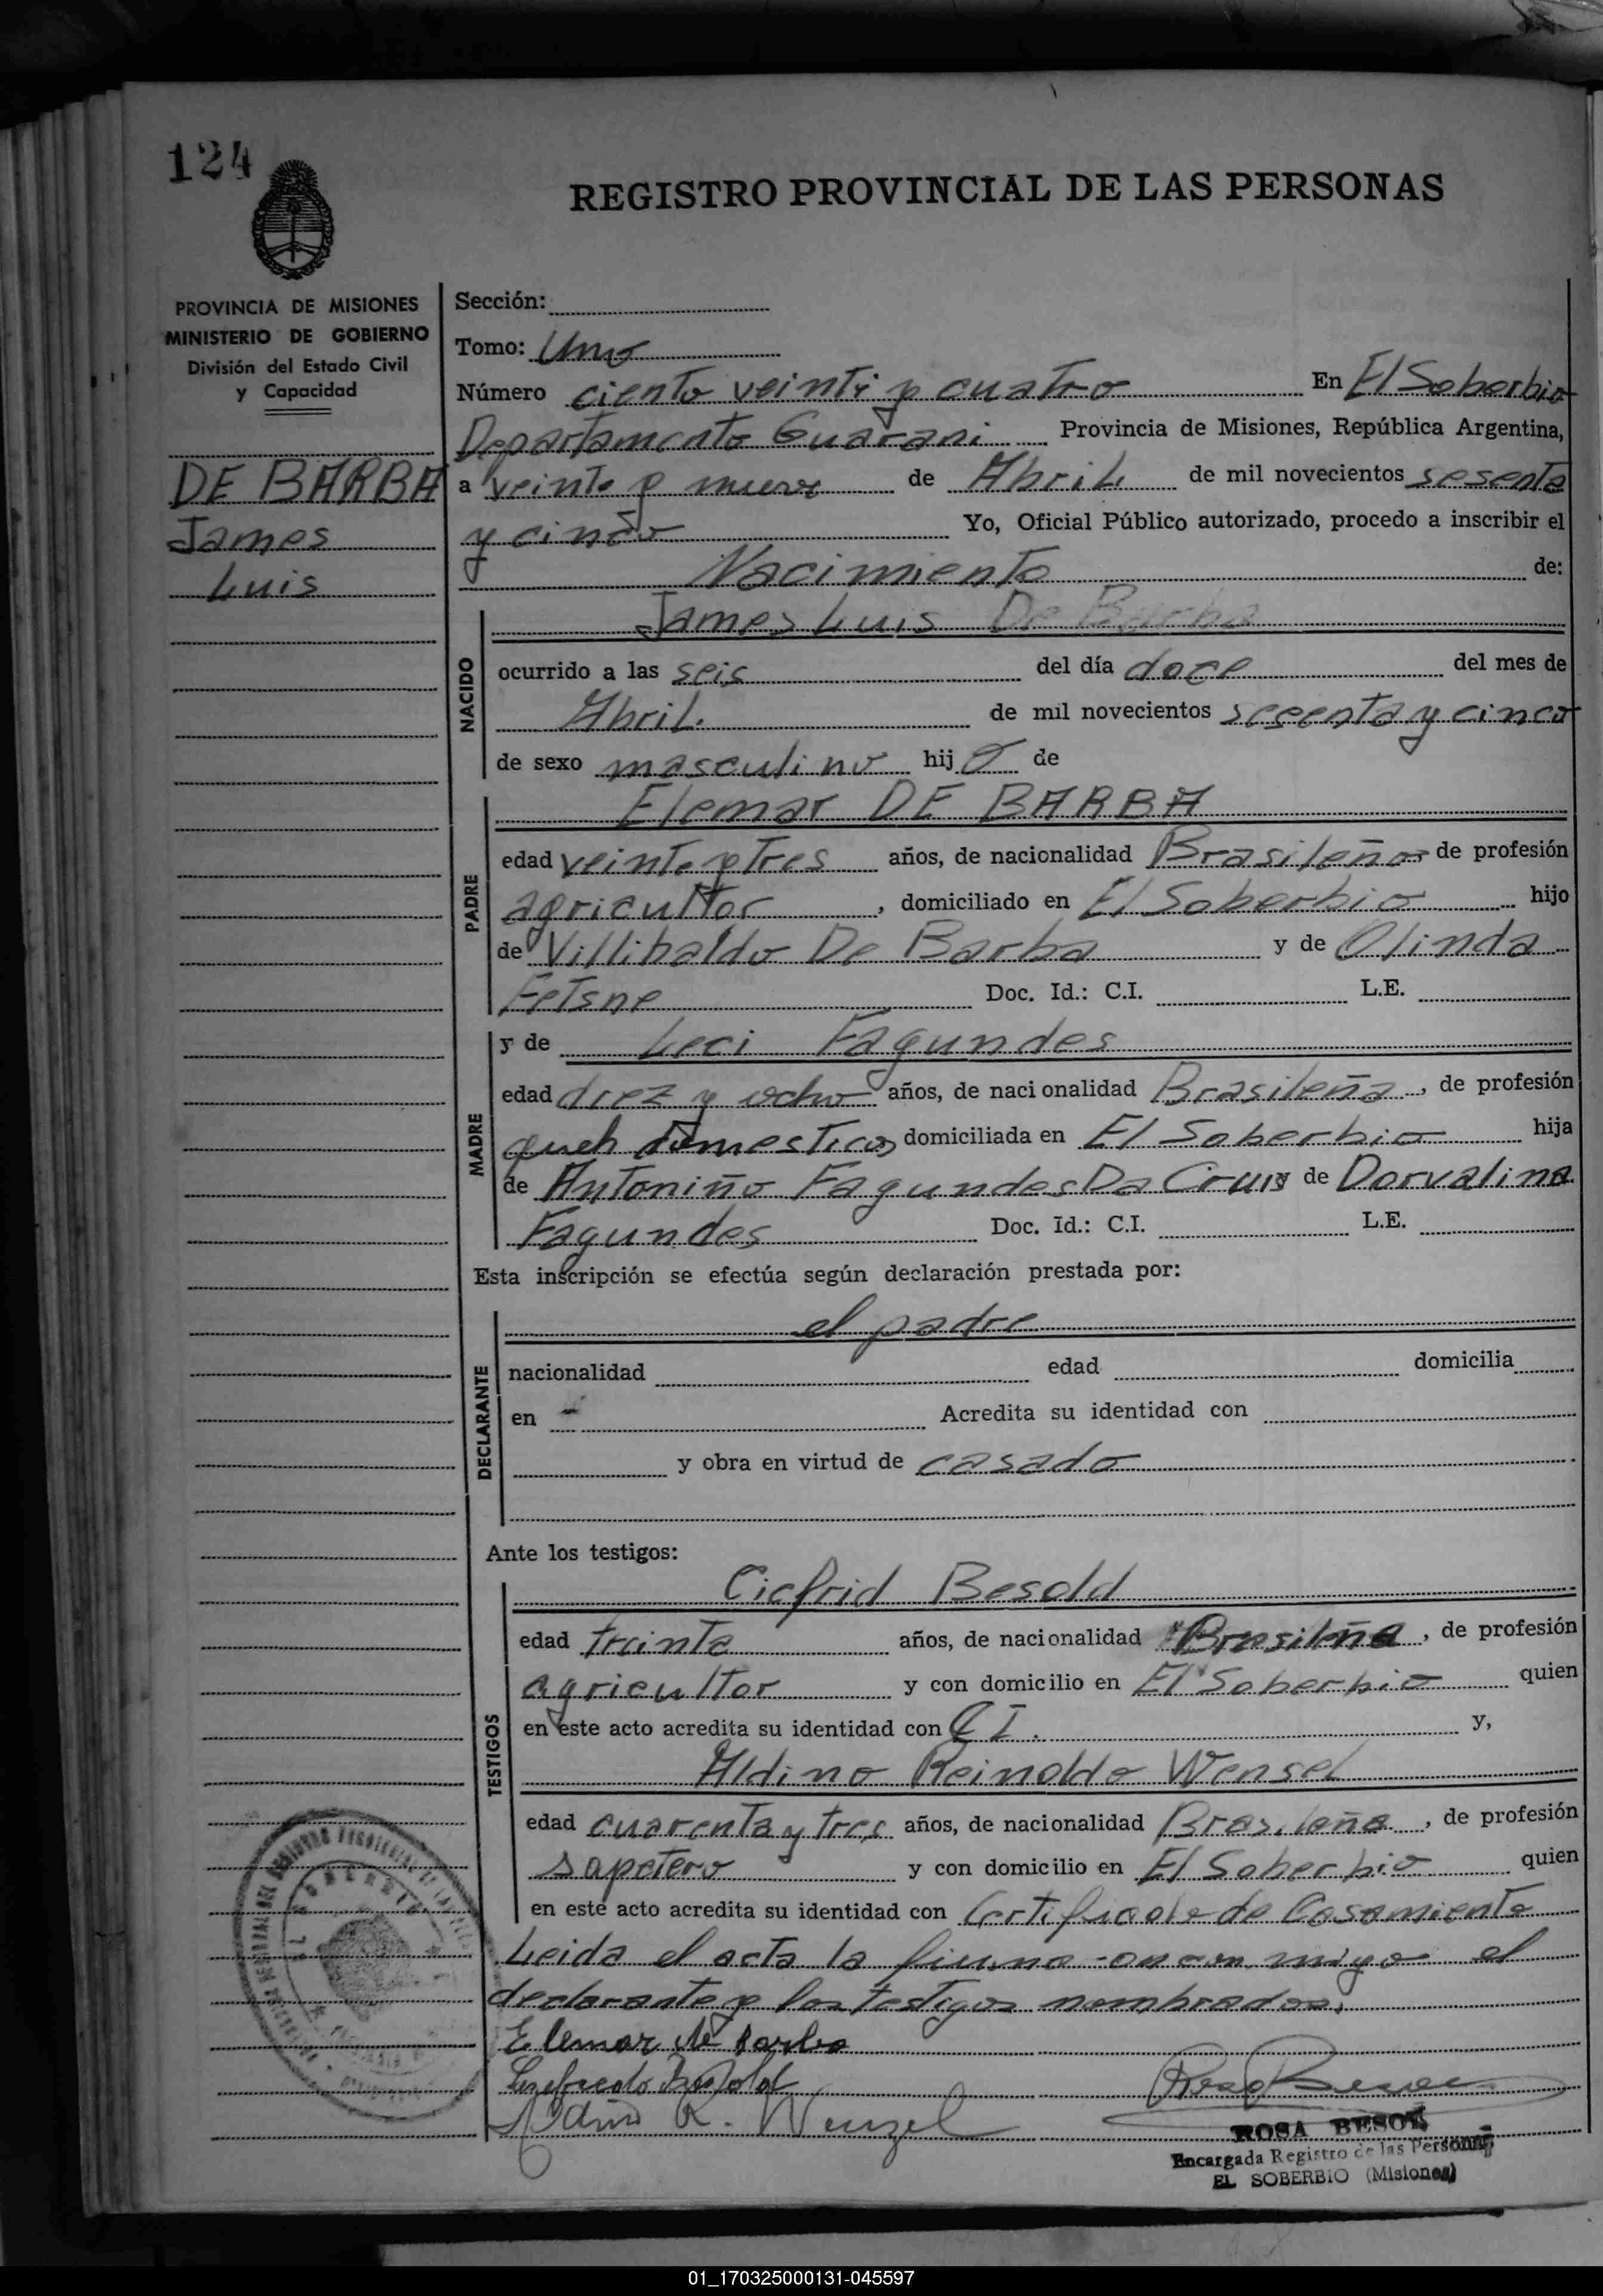 124
REGISTRO PROVINCIAL DE LAS PERSONAS
PROVINCIA DE MISIONES
MINISTERIO DE GOBIERNO
División del Estado Civil
y Capacidad
DE BARBA
James
Luis
Sección:
Tomo: Uno
Número ciento veinti y cuatro En El Soberbio
Departamento Guarani Provincia de Misiones, República Argentina,
a veinte y nueve de Abril de mil novecientos sesenta
y cinco Yo, Oficial Público autorizado, procedo a inscribir el
Nacimiento de:
James Luis De Barba
NACIDO
ocurrido a las seis del día doce del mes de
Abril. de mil novecientos seeenta y cinco
de sexo masculino hijo de
PADRE
Elemar DE BARBA
edad veinte y tres años, de nacionalidad Brasileño de profesión
agricultor, domiciliado en El Soberbio hijo
de Villibaldo De Barba y de Olinda
Fetsne Doc. Id.: C.I. L.E.
MADRE
y de Leci Fagundes
edad diez y ocho años, de nacionalidad Brasileña, de profesión
queh domesticos domiciliada en El Soberbio hija
de Antoniño Fagundes Da Cruz y de Dorvalina
Fagundes Doc. Id.: C.I. L.E.
Esta inscripción se efectúa según declaración prestada por:
DECLARANTE
el padre
nacionalidad edad domicilia
en Acredita su identidad con
y obra en virtud de casado
Ante los testigos:
TESTIGOS
Cicfrid Besold
edad treinta años, de nacionalidad Brasileña, de profesión
agricultor y con domicilio en El Soberbio quien
en este acto acredita su identidad con C I. y,
Aldino Reinoldo Wensel
edad cuarenta y tres años, de nacionalidad Brasileña, de profesión
sapatero y con domicilio en El Soberbio quien
en este acto acredita su identidad con Certificado de Casamiento
Leida el acta la firman con migo el
declarante y los testigos nombrados.
Elemar de Barba
Besold
R. Wenzel
ROSA BESOL
Encargada Registro de las Personas
EL SOBERBIO (Misiones)
01_170325000131-045597